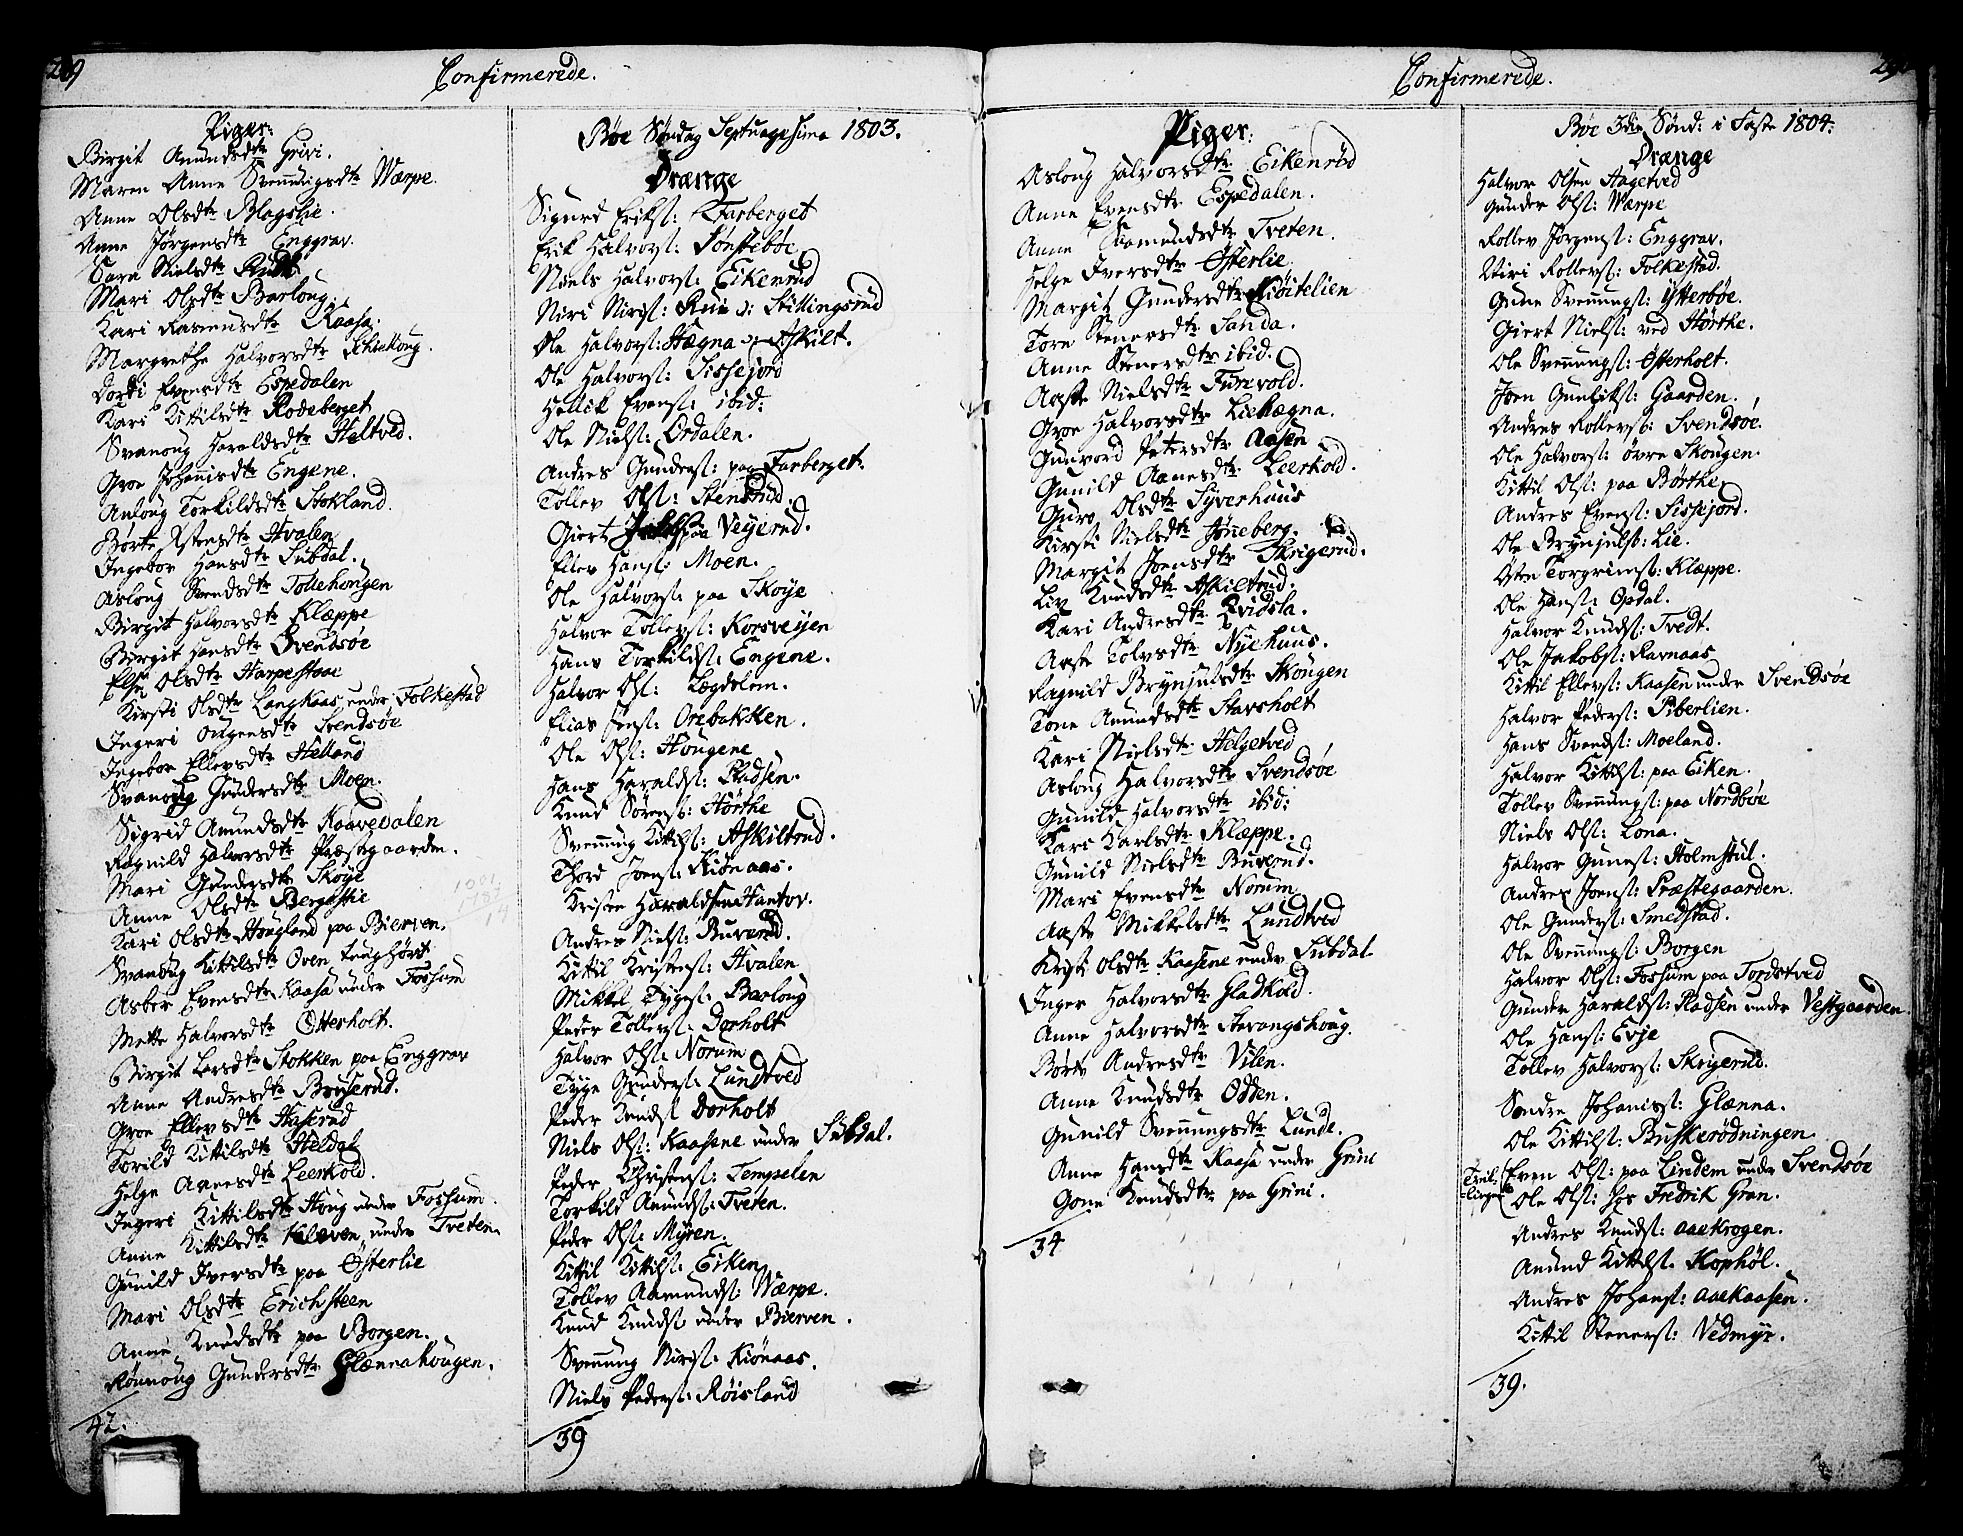 Confirmerede.
Piger:
Birgit Amundsdtr Grivi.
Maren Anne Svenungsdtr Værpe.
Anne Olsdtr Blagslie.
Anne Jørgensdtr Enggrav.
Sara Nielsdtr
Mari Olsdtr Barloug.
Kari Rasmusdtr Kaasa.
Margrethe Halvorsdtr
Dorti Evensdtr Espedalen
Kari Kittilsdtr Rodeberget
Svanoug Haraldsdtr Heltved.
Groe Johannisdtr Engene.
Anloug Torkildsdtr Stokland.
Børte Østensdtr Hvalen
Ingebor Hansdtr Subdal.
Asloug Svendsdtr Tollehougen
Birgit Halvorsdtr Klæppe
Birgit Hansdtr Svendsøe
Else Olsdtr Harpestaae
Kirsti Olsdtr Langkaas under Folkestad
Ingeri Ougensdtr Svendsøe
Ingebor Ellevsdtr Helland
Svanoug Gundersdtr Moen.
Sigrid Amundsdtr Kaavedalen
Ragnild Halvorsdtr Præstgaarden.
Mari Gundersdtr Skoye
Anne Olsdtr Bergstie
Kari Olsdtr Hougland paa Bierven.
Svanoug Kittilsdtr Oven
Asber Evensdtr Kaasa under Fossum
Mette Halvorsdtr Otterholt.
Birgit Larsdtr Stokken paa Enggrav
Anne Andresdtr Bruserud.
Groe Ellevsdtr Haserud
Torild Kittilsdtr Heldal
Helge Aanesdtr Leerkold.
Ingeri Kittilsdtr Houg under Fossum.
Anne Kittilsdtr Kleven under Tveten.
Gunild Iversdtr paa Østerlie
Mari Olsdtr Erichsteen
Anne Knudsdtr paa Borgen.
Rønnoug Gundersdtr Glænnahougen.
42.
Bøe Søndag Septuagesima 1803.
Drænge
Sigurd Erikss: Farberget
Erik Halvors: Tønstebøe
Niels Halvors: Eikenrud
Niri Niris: Stillingsrud
Ole Halvors: Hægna Askilt.
Ole Halvors: Sissejord
Hellik Evens: ibid:
Ole Niels: Ørdalen.
Andres Gunders: paa Farberget.
Tollev Ols: Stensrud.
Giert paa Veyerud.
Ellev Hans: Moen.
Ole Halvors: paa Skoye
Halvor Tollevs: Korsveyen
Hans Torkilds: Engene.
Halvor Ols: Lægdelem.
Elias Jens: Orebakken.
Ole Ols: Hougene
Hans Haralds: Pladsen.
Knud Sørens: Hørthe
Svenung Kittils: Askiltrud.
Thord Joens: Kiønaas.
Kristen Haraldsen Hantov.
Andres Niels: Buverud.
Kittil Kristens: Hvalen
Mikkel Tyges: Barloug
Peder Tollevs: Dorholt
Halvor Ols: Norum
Tyge Gunders: Lundtved
Peder Knuds Dorholt
Niels Ols: Kaasene under Subdal.
Peder Christens: Tempelen
Torkild Amunds: Tveten.
Peder Ols: Myren.
Kittil Kittils: Eiken
Tollev Aamunds: Værpe.
Knud Knuds under Bierven.
Svenung Niris: Kiønaas.
Niels Peders: Røisland
39
Confirmerede.
Piger:
Asloug Halvorsdtr Eikenrød
Anne Evensdtr Espedalen.
Anne Aamundsdtr Tveten.
Helge Iversdtr Østerlie.
Margit Gundersdtr Kiøitelien
Tore Stenersdtr Sanda.
Anne Stenersdtr ibid.
Aaste Nielsdtr Furevold.
Groe Halvorsdtr Liehægna.
Gunvord Petersdtr Aasen
Gunild Aanesdtr Leerkold.
Guro Olsdtr Syverhuus
Kirsti Nielsdtr Jøneberg.
Margit Joensdtr Skrigerud.
Liv Knudsdtr Askiltrud.
Kari Andresdtr Qvidsla.
Aaste Tolvsdtr Nyehuus.
Ragnild Brynjulsdtr Hougen
Tone Amundsdtr Stavsholt
Kari Nielsdtr Helgetved
Asloug Halvorsdtr Svendsøe
Gunild Halvorsdtr ibid:
Kari Karlsdtr Klæppe.
Gunild Nielsdtr Buverud.
Mari Evensdtr Norum
Aaste Mikkelsdtr Lundtved
Kristi Olsdtr Kaasene under Subdal.
Inger Halvorsdtr Gladkold.
Anne Halvorsdtr Stavangshoug.
Børte Andresdtr Vilen.
Anne Knudsdtr Odden.
Gunild Svenungsdtr Lunde.
Anne Hansdtr Kaasa under Grini
Gone Knudsdtr paa Grini.
34
Bøe 3die Sønd: i Faste 1804:
Drænge
Halvor Olsen Hagetved
Gunder Ols: Værpe
Rollev Jørgens: Enggrav.
Niri Rollevs: Folkestad.
Gune Svenungs: Ytterbøe.
Giert Niels: ved Hørthe.
Ole Svenungs: Østerholt.
Joen Gunliks: Gaarden.
Andres Rollevs: Svendsøe.
Ole Halvors: øvre Skougen.
Kittil Ols: paa Børthe
Andres Evens: Sissejord.
Ole Brynjuls: Lie.
Østen Torgrims: Klæppe.
Ole Hans: Opdal.
Halvor Knuds: Tvedt.
Ole Jakobs: Ravnaas
Kittil Ellevs: Kaasen under Svendsøe
Halvor Peders: Siberlien.
Hans Svends: Moeland.
Halvor Kittils: paa Eiken.
Tollev Svenungs: paa Nordbøe
Niels Ols: Lona.
Halvor Gunes: Holmstul.
Andres Joens: Præstegaarden.
Ole Gunders: Smedstad.
Ole Svenungs: Borgen
Halvor Ols: Fossum paa Tordstved
Gunder Haralds: Pladsen under Vestgaarden.
Ole Hans: Evje
Tollev Halvors: Skrigerud.
Sondre Johanis: Glænna.
Ole Kittils: Buskerødningen.
Tvil-
lingene
Even Ols: paa Lindem under Svendsøe
Ole Ols: hos Fredrik Gran.
Andres Knuds: aaekrogen.
Amund Kittils. Kophøl.
Andres Johans: aaekaasen.
Kittil Steners: Vedmyr.
39.